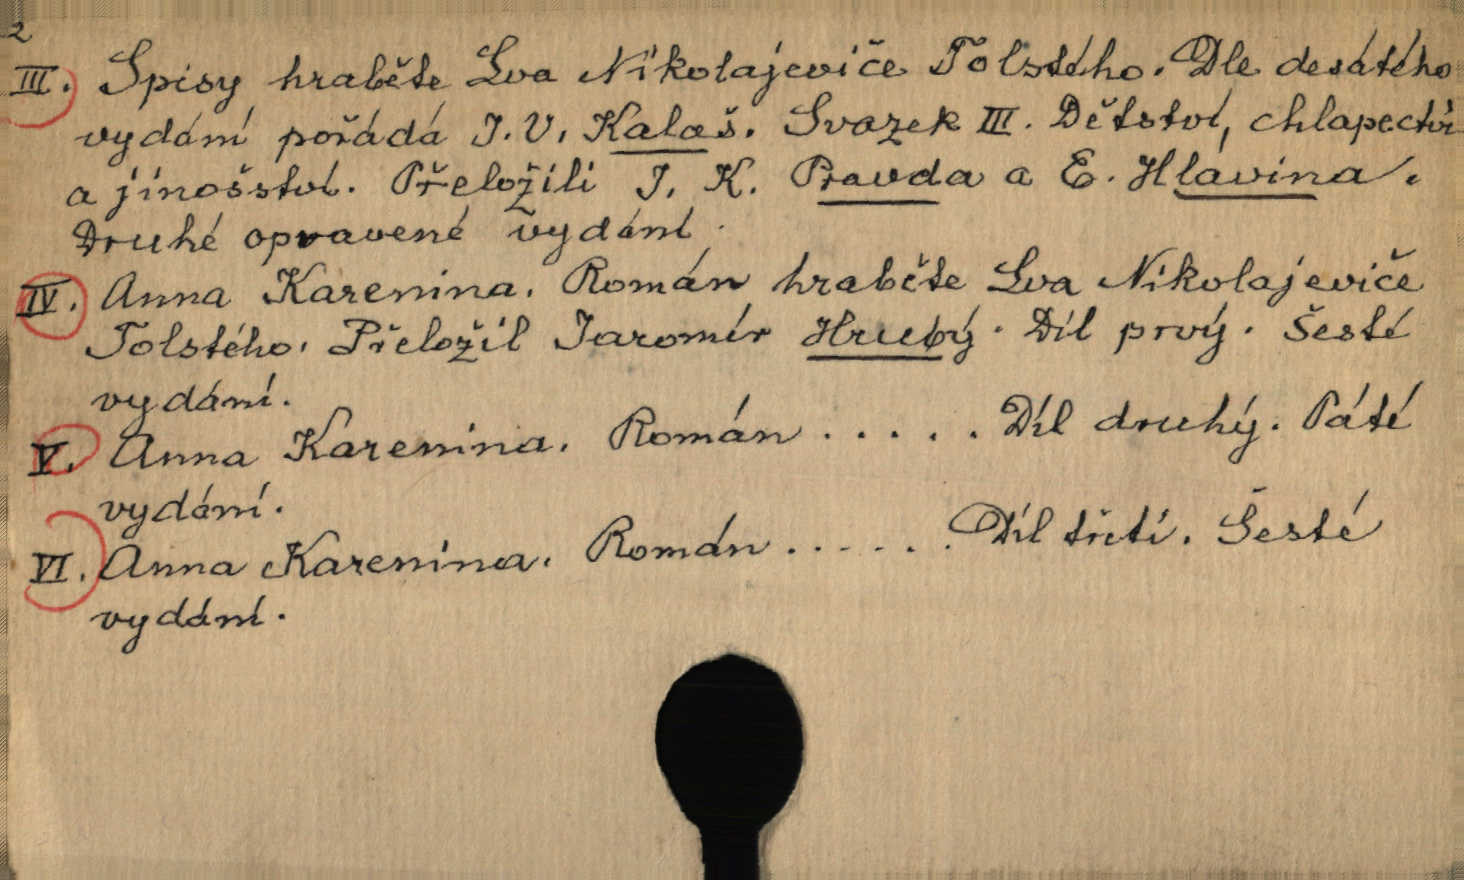 2
III. Spisy hraběte Lva Nikolajeviče Tolstého. Dle desátého
vydání pořádá J. V. Kalaš. Svazek III. Dětství, chlapectví
a jinošství. Přeložili J. K. Pravda a E. Hlavina.
Druhé opravené vydání.
IV. Anna Karenina. Román hraběte Lva Nikolajeviče
Tolstého. Přeložil Jaromír Hrubý. Díl prvý. Šesté
vydání.
V. Anna Karenina. Román . . . . . Díl druhý. Páté
vydání.
VI. Anna Karenina. Román . . . . . . Díl třetí. Šesté
vydání.